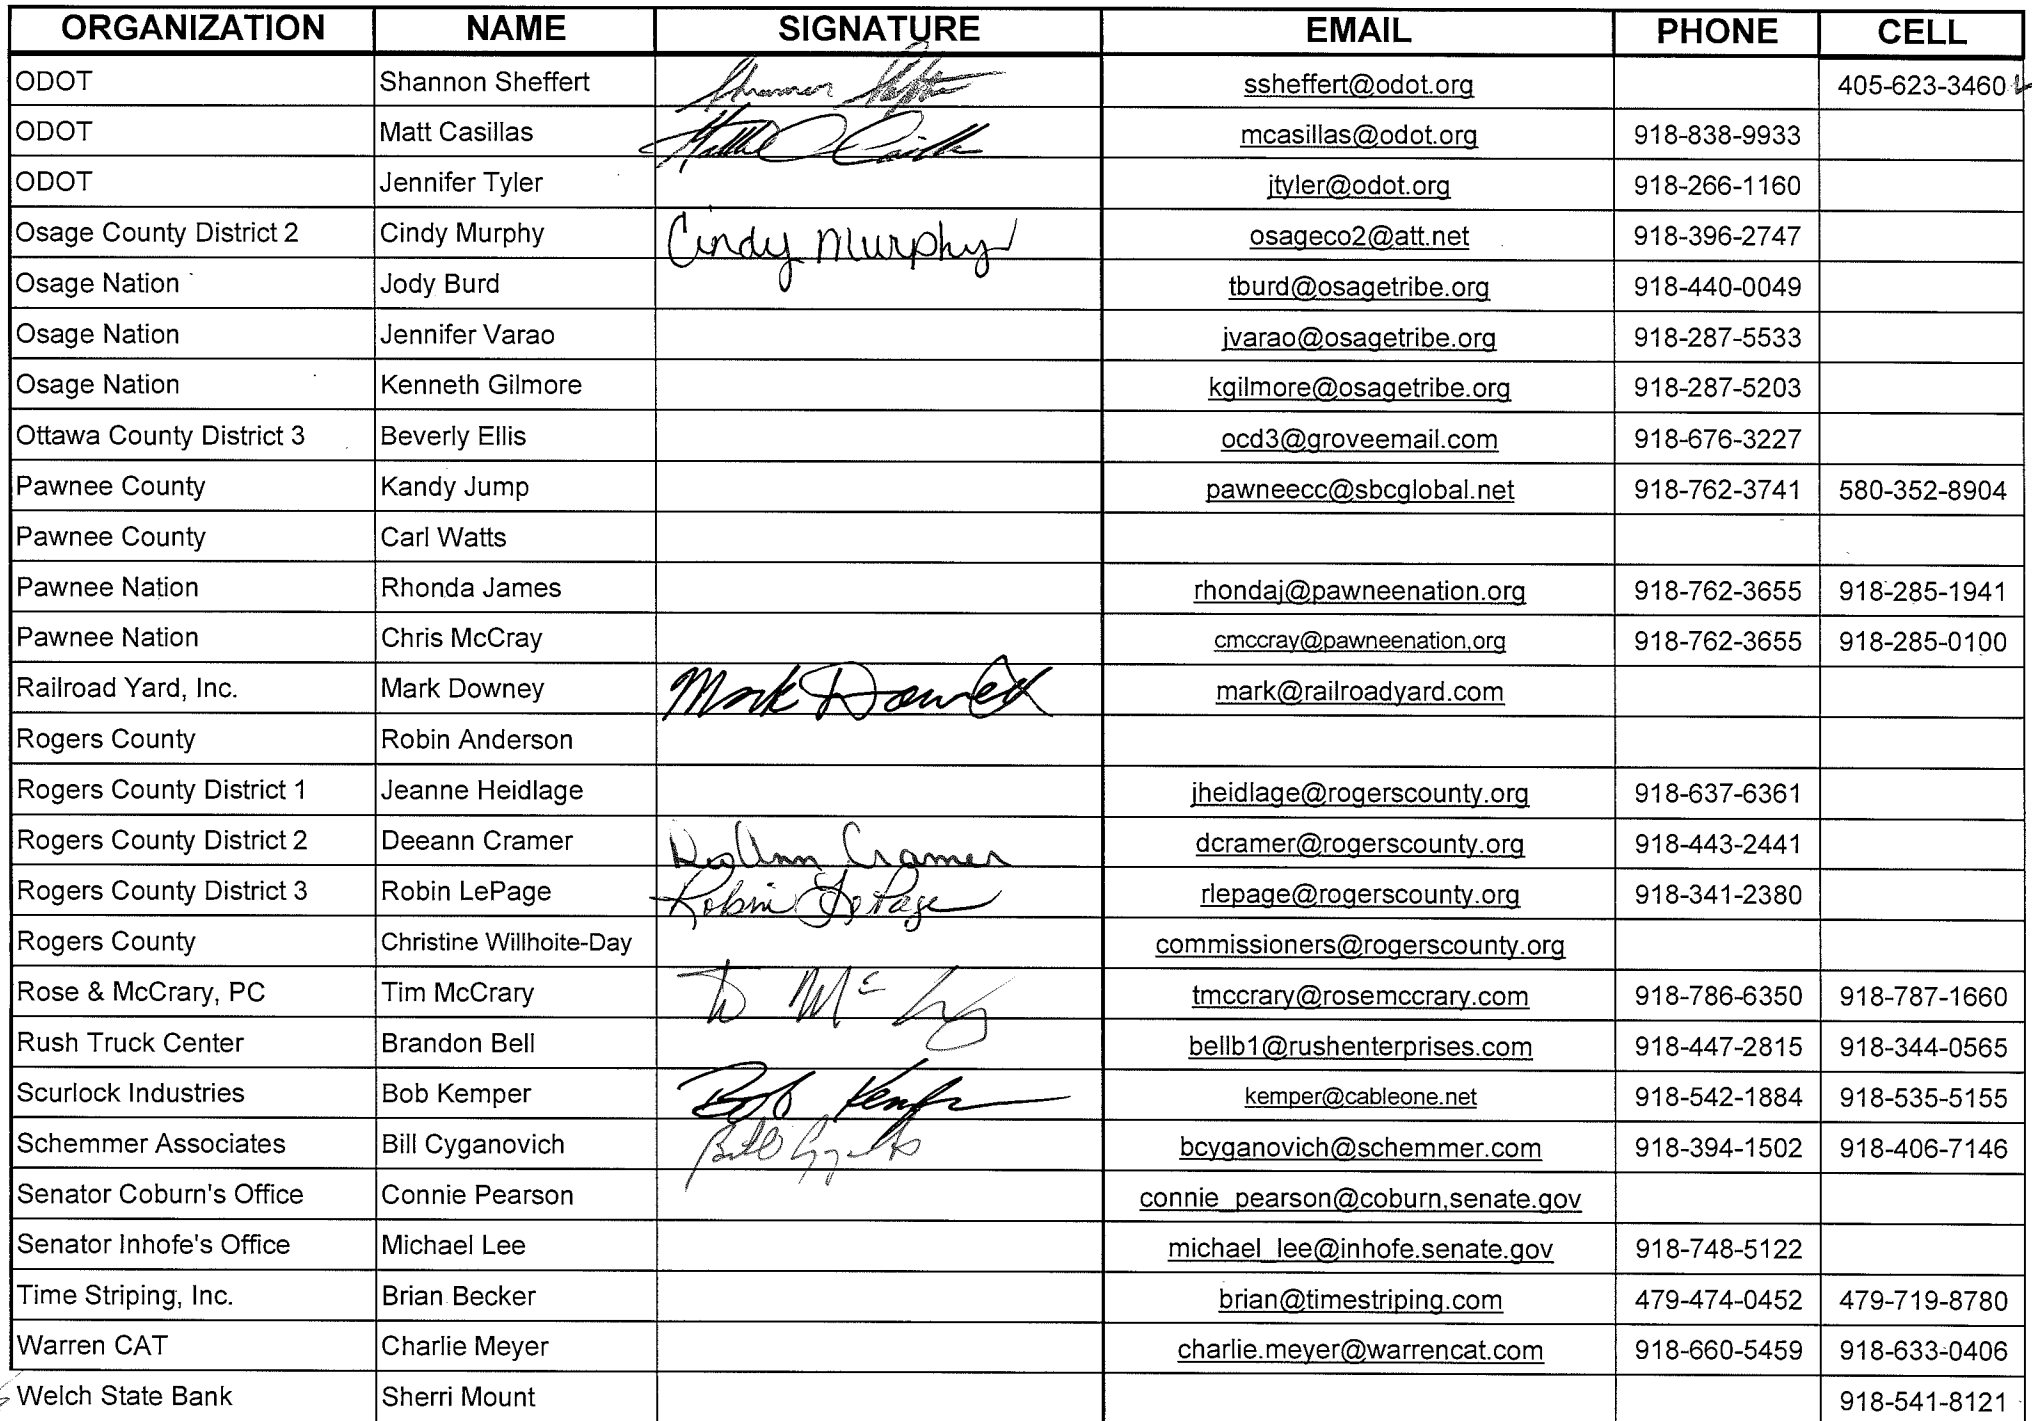 ORGANIZATION NAME SIGNATURE EMAIL PHONE CELL
ODOT Shannon Sheffert Shannon ssheffert@odot.org 405-623-3460
ODOT Matt Casillas mcasillas@odot.org 918-838-9933
ODOT Jennifer Tyler jtyler@odot.org 918-266-1160
Osage County District 2 Cindy Murphy Cindy Murphy osageco2@att.net 918-396-2747
Osage Nation Jody Burd tburd@osagetribe.org 918-440-0049
Osage Nation Jennifer Varao jvarao@osagetribe.org 918-287-5533
Osage Nation Kenneth Gilmore kgilmore@osagetribe.org 918-287-5203
Ottawa County District 3 Beverly Ellis ocd3@groveemail.com 918-676-3227
Pawnee County Kandy Jump pawneecc@sbcglobal.net 918-762-3741 580-352-8904
Pawnee County Carl Watts
Pawnee Nation Rhonda James rhondaj@pawneenation.org 918-762-3655 918-285-1941
Pawnee Nation Chris McCray cmccray@pawneenation,org 918-762-3655 918-285-0100
Railroad Yard, Inc. Mark Downey Mark mark@railroadyard.com
Rogers County Robin Anderson
Rogers County District 1 Jeanne Heidlage jheidlage@rogerscounty.org 918-637-6361
Rogers County District 2 Deeann Cramer DeeAnn Cramer dcramer@rogerscounty.org 918-443-2441
Rogers County District 3 Robin LePage Robin LePage rlepage@rogerscounty.org 918-341-2380
Rogers County Christine Willhoite-Day commissioners@rogerscounty.org
Rose & McCrary, PC Tim McCrary tmccrary@rosemccrary.com 918-786-6350 918-787-1660
Rush Truck Center Brandon Bell bellb1@rushenterprises.com 918-447-2815 918-344-0565
Scurlock Industries Bob Kemper Bob Kemper kemper@cableone.net 918-542-1884 918-535-5155
Schemmer Associates Bill Cyganovich Bill bcyganovich@schemmer.com 918-394-1502 918-406-7146
Senator Coburn's Office Connie Pearson connie_pearson@coburn,senate.gov
Senator Inhofe's Office Michael Lee michael_lee@inhofe.senate.gov 918-748-5122
Time Striping, Inc. Brian Becker brian@timestriping.com 479-474-0452 479-719-8780
Warren CAT Charlie Meyer charlie.meyer@warrencat.com 918-660-5459 918-633-0406
Welch State Bank Sherri Mount 918-541-8121